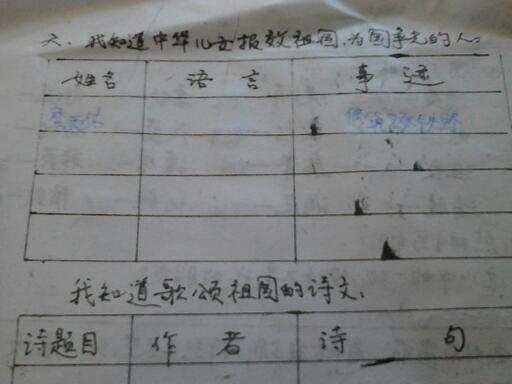 六、我知道中华儿女报效祖国,为国争光的人。
姓名 语言 事迹
詹天佑 修筑京张铁路
我知道歌颂祖国的诗文,
诗题目 作者 诗句